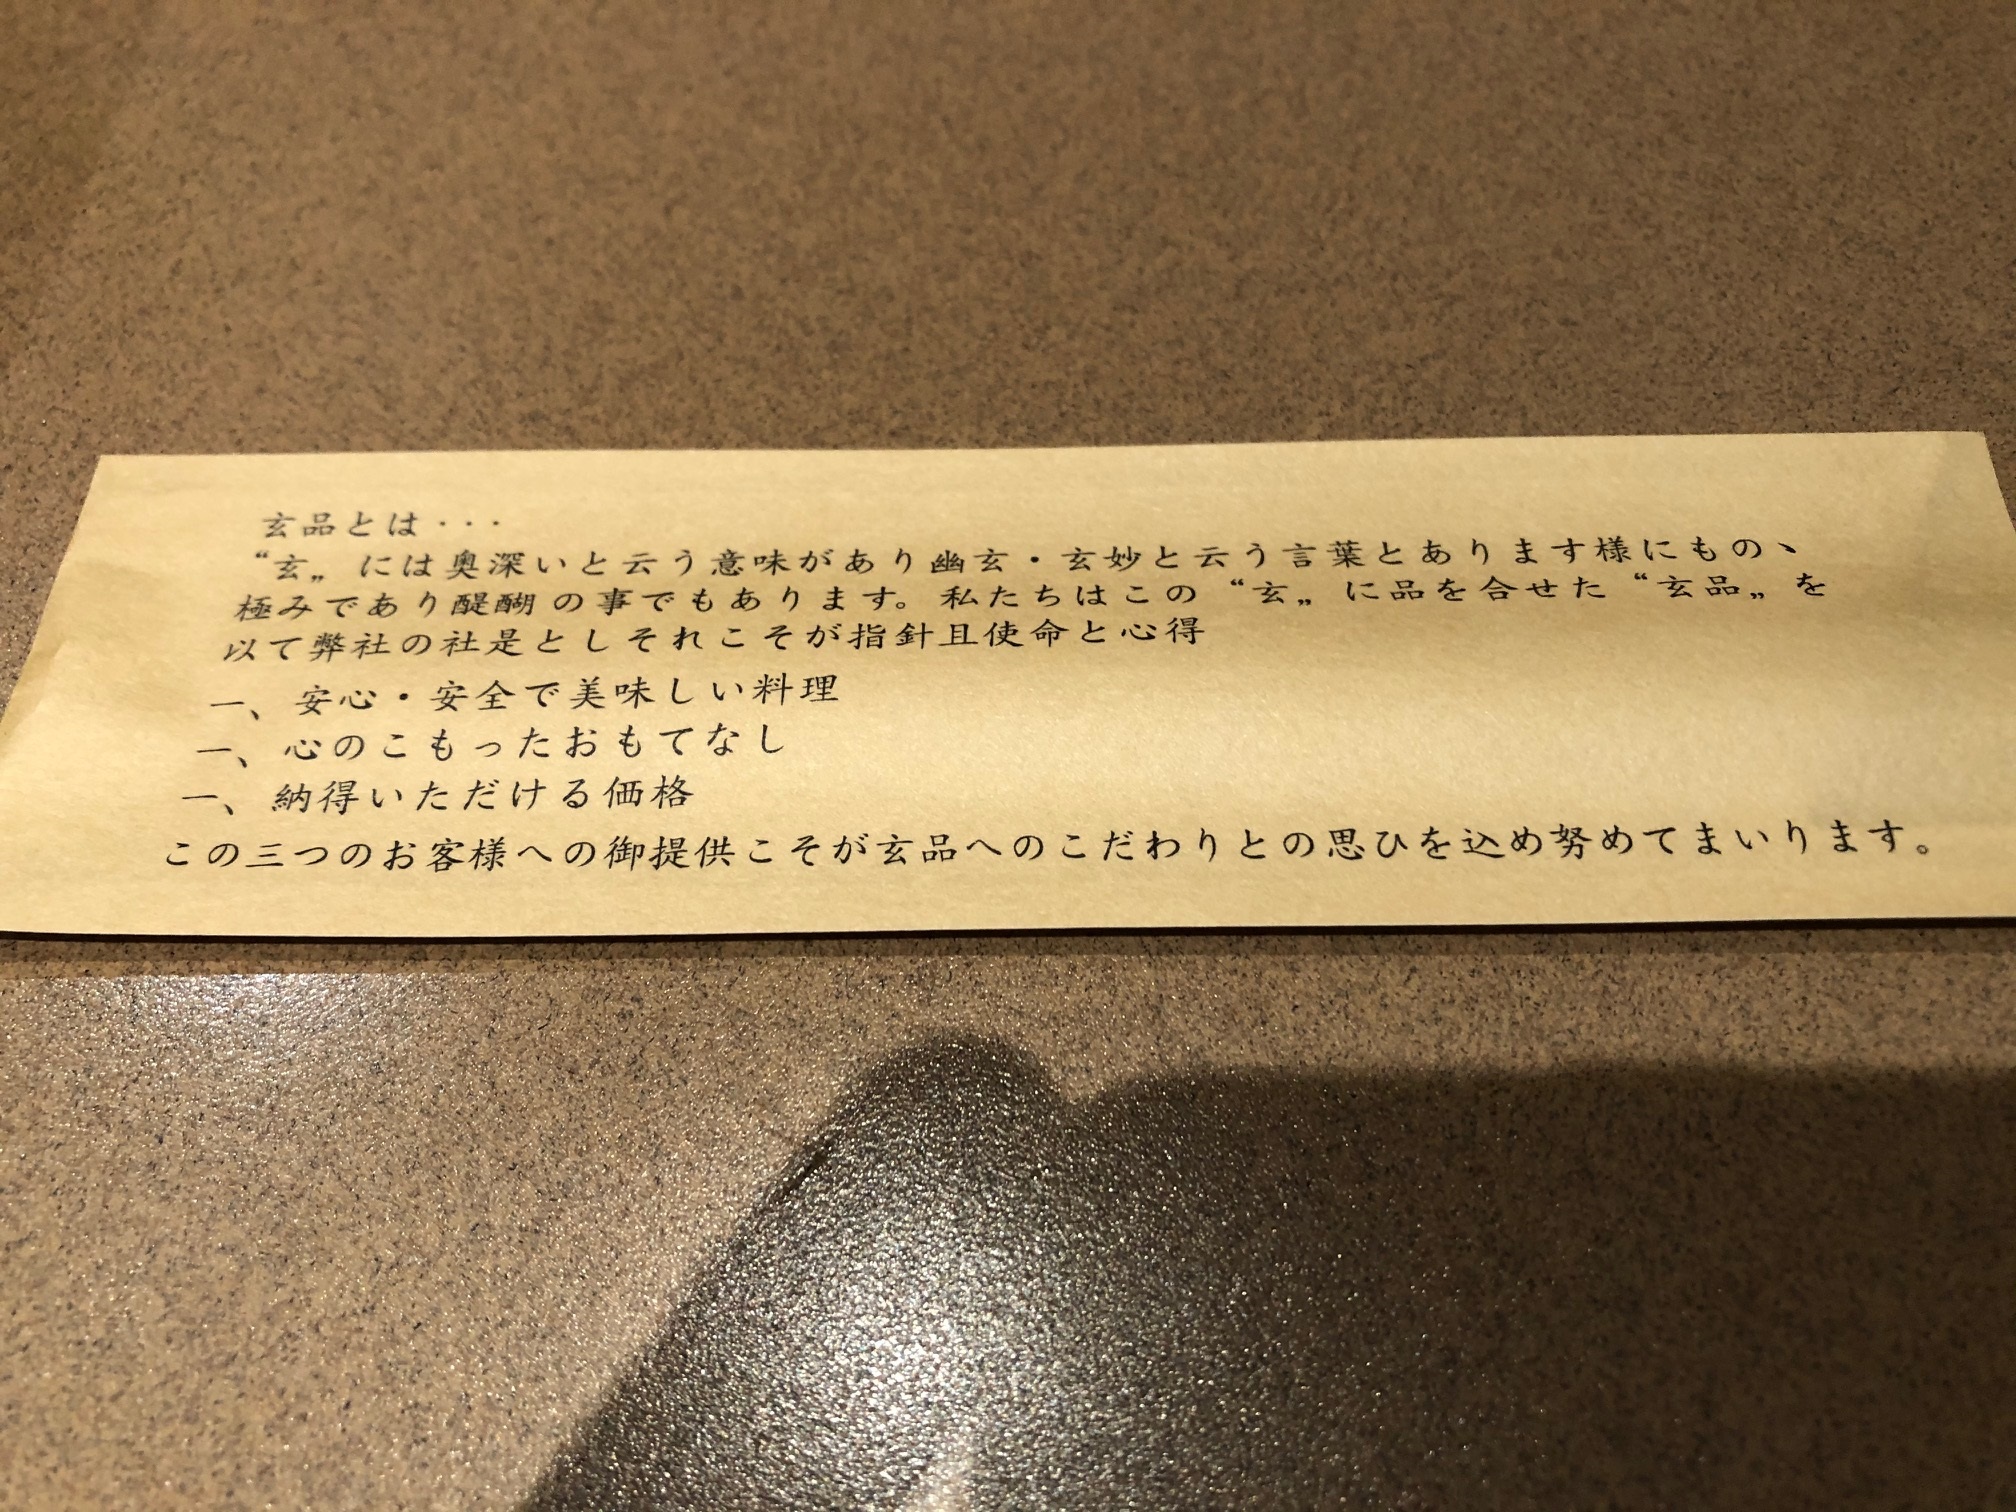 玄品とは・・・
“玄„には奥深いと云う意味があり幽玄・玄妙と云う言葉とあります様にもの、
極みであり醍醐の事でもあります。私たちはこの“玄„に品を合せた“玄品„を
以て弊社の社是としそれこそが指針且使命と心得
一、安心・安全で美味しい料理
一、心のこもったおもてなし
一、納得いただける価格
この三つのお客様への御提供こそが玄品へのこだわりとの思ひを込め努めてまいります。